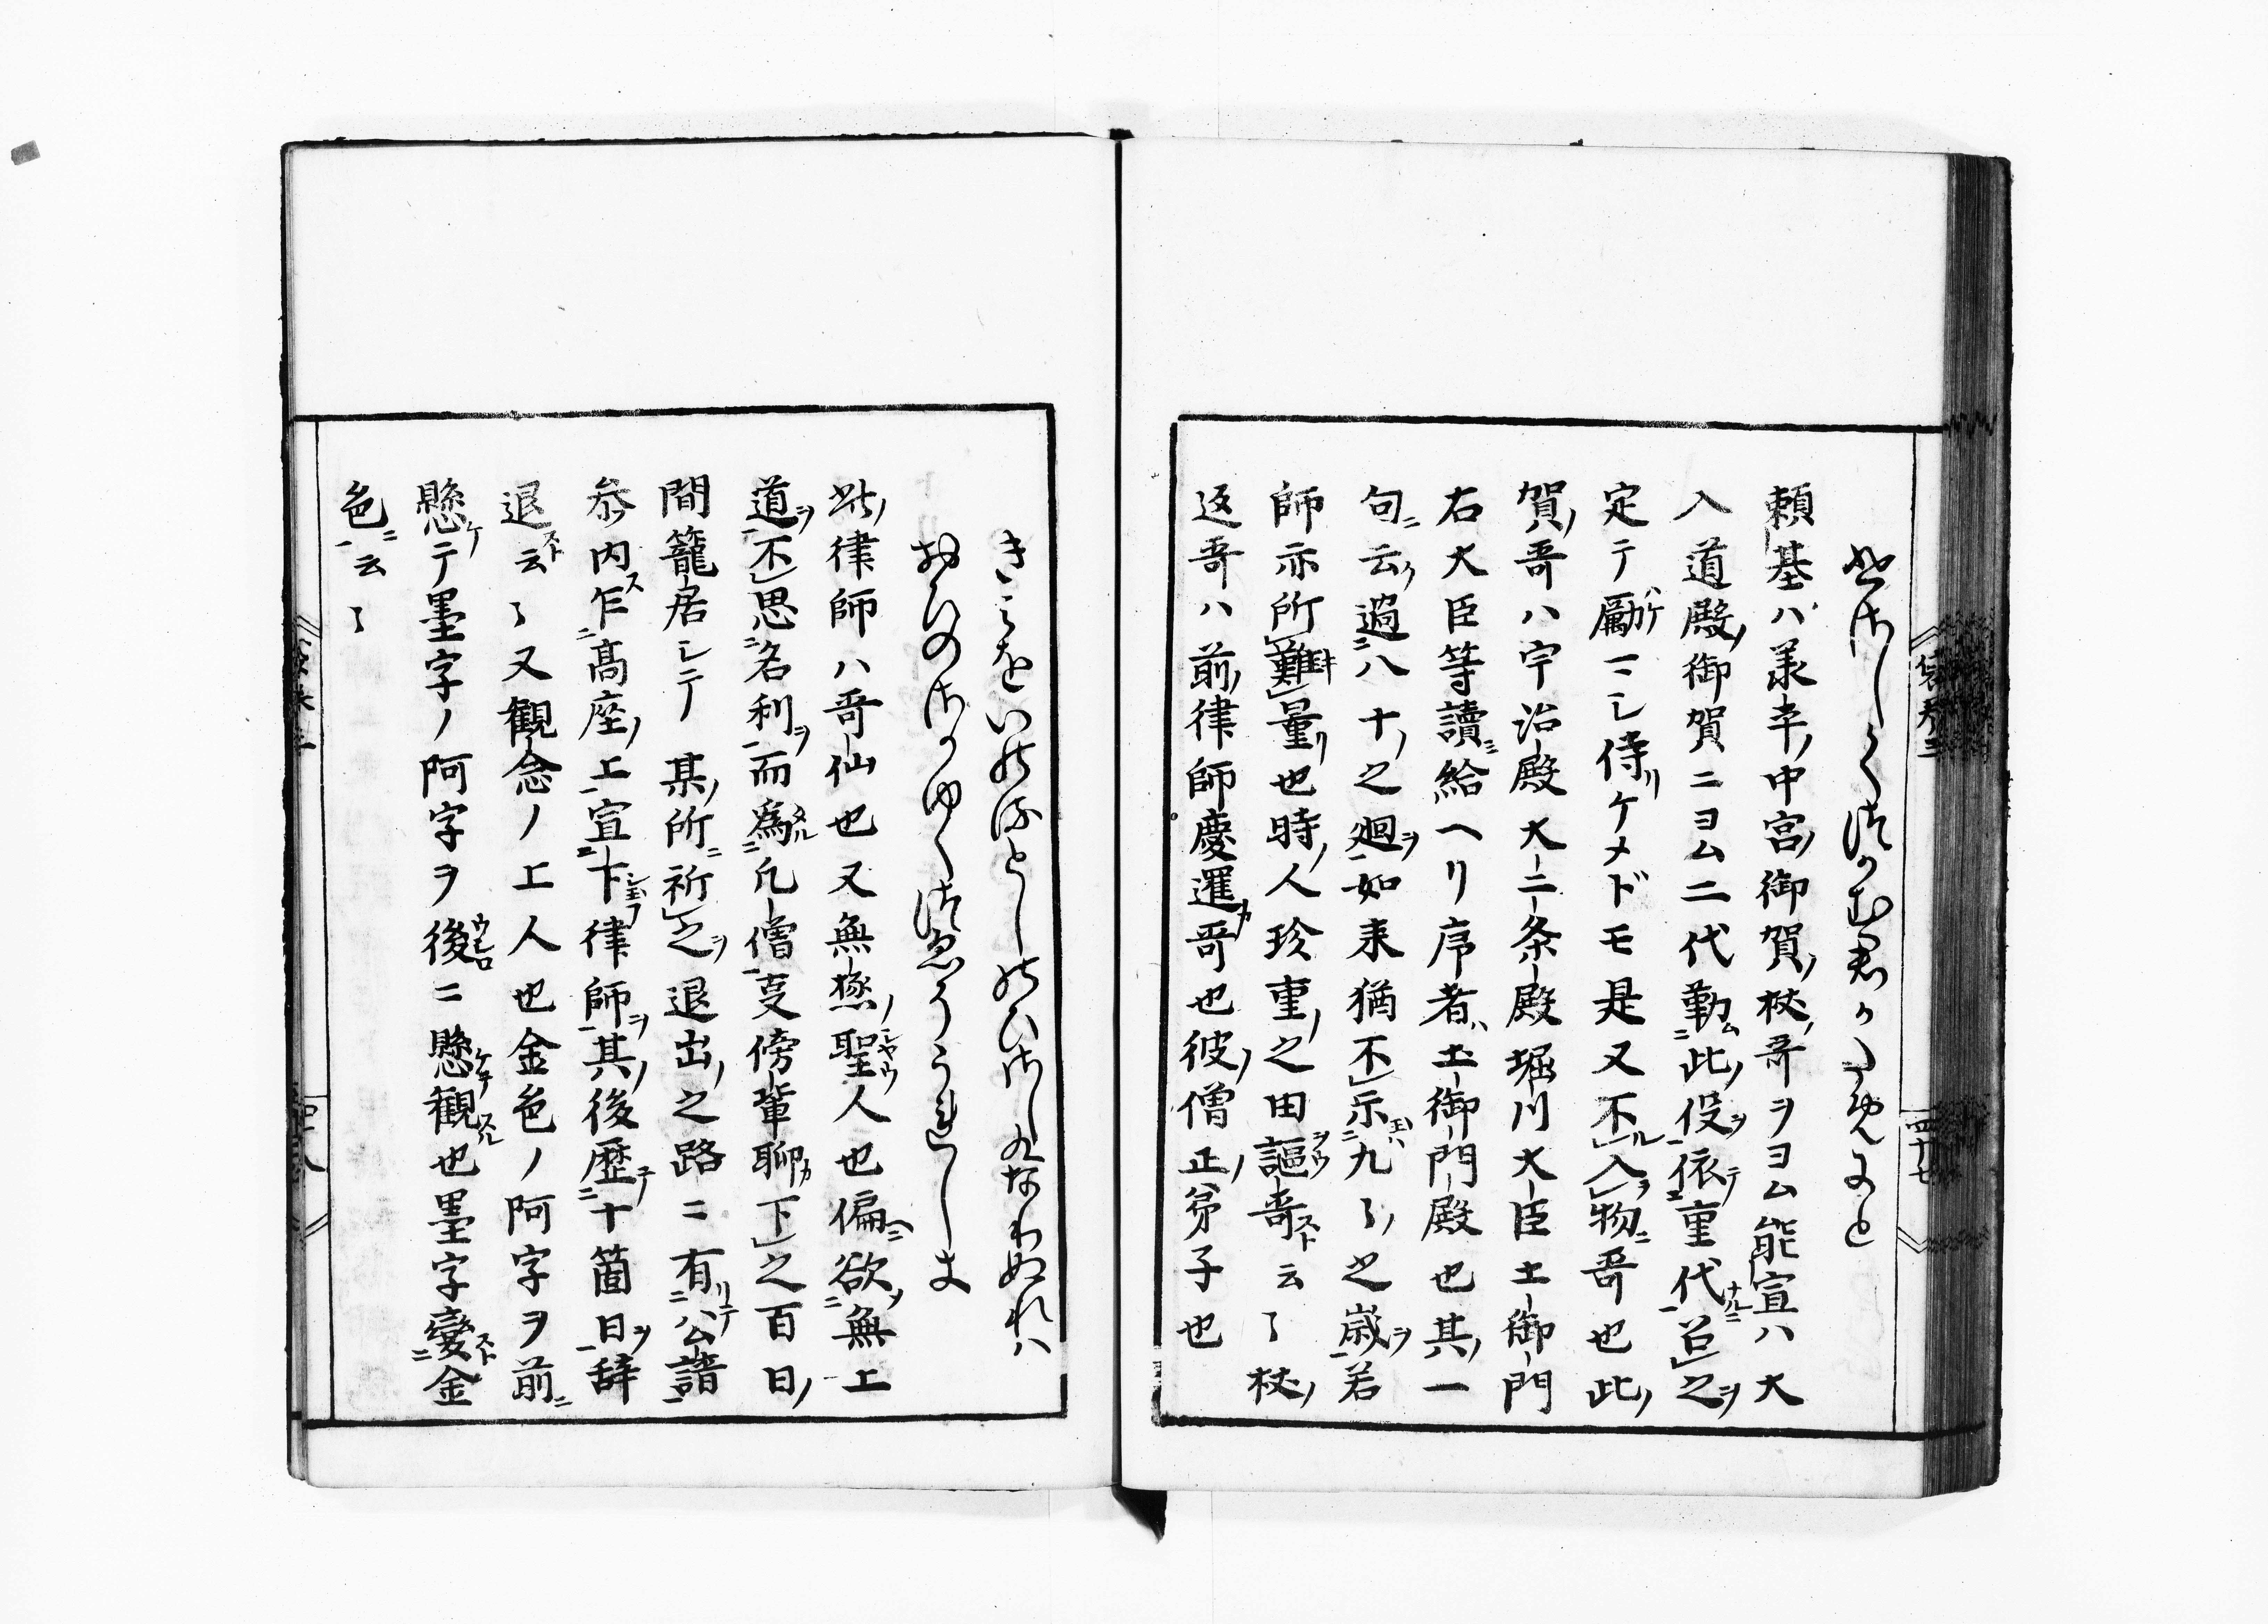 頼基ハ羕幸ノ中宮ノ御賀ノ杖ノ哥ヲヨム能宣ハ大
入道殿ノ御賀ニヨム二代勤ム二此ノ役ヲ一依テ二重代ナルニ一召レ之ヲ
定テ勵ハゲマシ侍リケメドモ是又不ルレ入ラ二物哥也此ノ
賀ノ哥ハ宇治殿大二条殿堀川大臣土御門
右大臣等讀ミ給ヘリ序者ハ土御門殿也其ノ一
句ニ云ク過二八十ノ之廻ヲ一如来猶不レ示二九々ノ之歳ヲ一若
師亦所レ難キレ量リ也時ノ人珍重ノ之田謳哥スト云々杖ノ
返哥ハ前ノ律師慶暹カ哥也彼ノ僧正ノ弟子也
此ノ律師ハ哥仙也又無慙ノ聖人也偏ヘニ欲ソ二無上
道ヲ一不レ思二名利ヲ一而爲タル二凡僧一耳傍輩聊カ下レ之百日ノ
間籠居シテ某ノ所ニ祈レ之ヲ退出ノ之路ニ有リテ二公請一
参内ス乍二髙座ノ上一宣二下律師ヲ一其ノ後歴テ二十箇日ヲ一辞
退スト云々又観念ノ上人也金色ノ阿字ヲ前ニ
懸ケテ墨字ノ阿字ヲ後ウシロニ懸ケテ観スル也墨字變スト二金
色ニ一云々